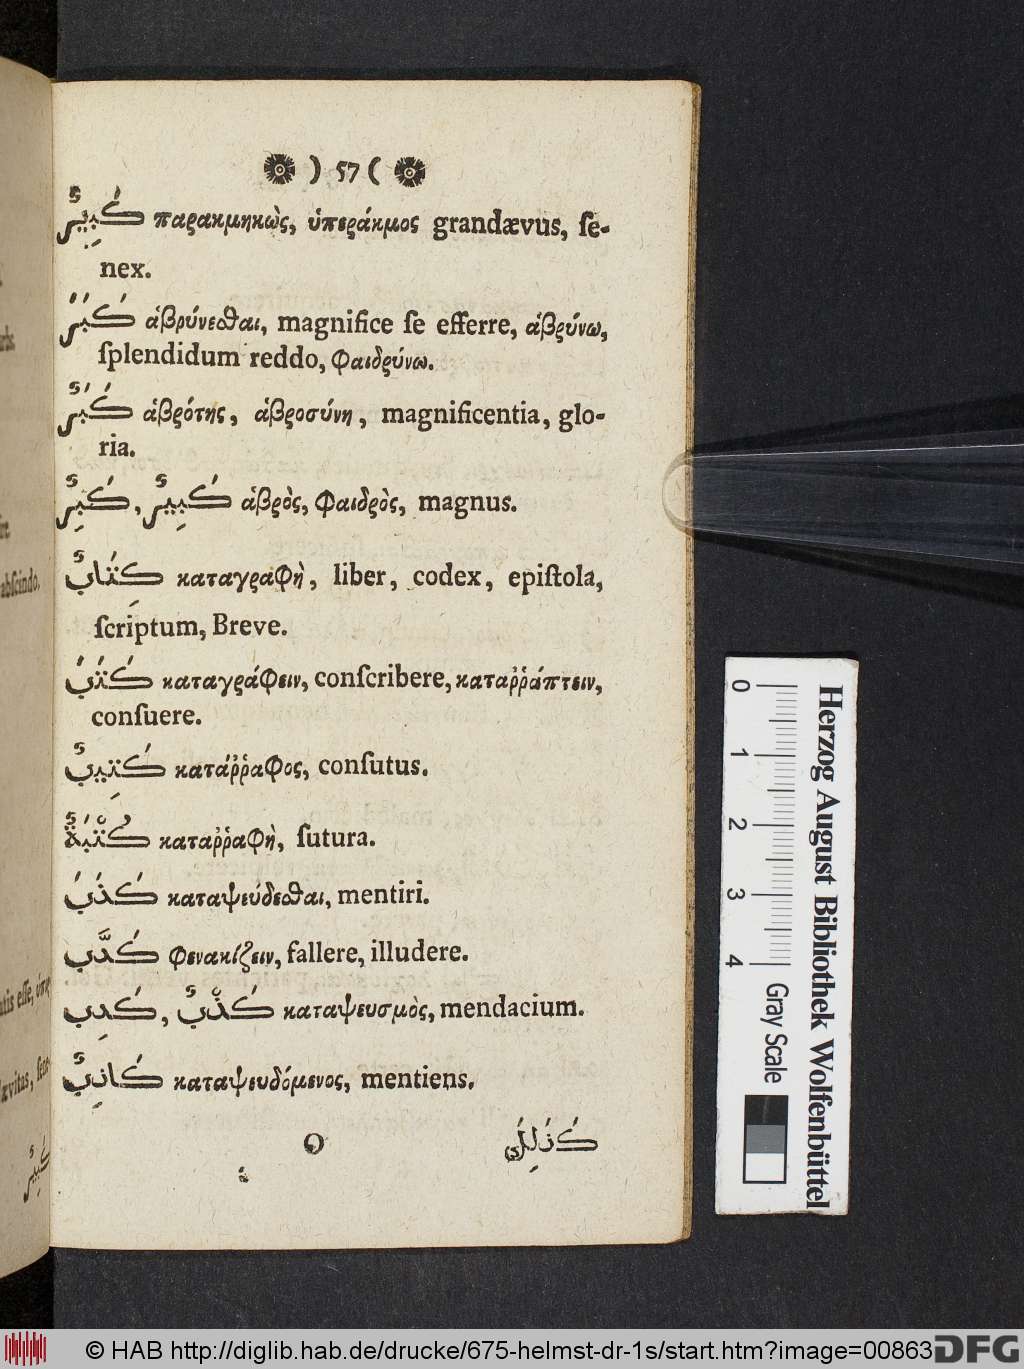 ) 57 (
كَبِيرٌ παρακμηκὼς, ὑπεράκμος grandævus, ſe-
nex.
كَبَرَ ἁβρύνεσθαι, magnifice ſe efferre, ἁβρύνω,
ſplendidum reddo, φαιδρύνω.
كَبَرٌ ἁβρότης, ἁβροσύνη, magnificentia, glo-
ria.
كَبِرٌ, كَبِيرٌ ἁβρὸς, φαιδρὸς, magnus.
كِتَابٌ καταγραφὴ, liber, codex, epiſtola,
ſcriptum, Breve.
كَتَبَ καταγράφειν, conſcribere, καταῤῥάπτειν,
conſuere.
كَتِيبٌ κατάῤῥαφος, conſutus.
كُتْبَةٌ καταῤῥαφὴ, ſutura.
كَذَبَ καταψεύδεσθαι, mentiri.
كَدَّبَ φενακίζειν, fallere, illudere.
كَدِب, كَذْبٌ καταψευσμὸς, mendacium.
كَاذِبٌ καταψευδόμενος, mentiens.
abſcindo.
Herzog August Bibliothek Wolfenbüttel
0 1 2 3 4
Gray Scale
© HAB http://diglib.hab.de/drucke/675-helmst-dr-1s/start.htm?image=00863
DFG